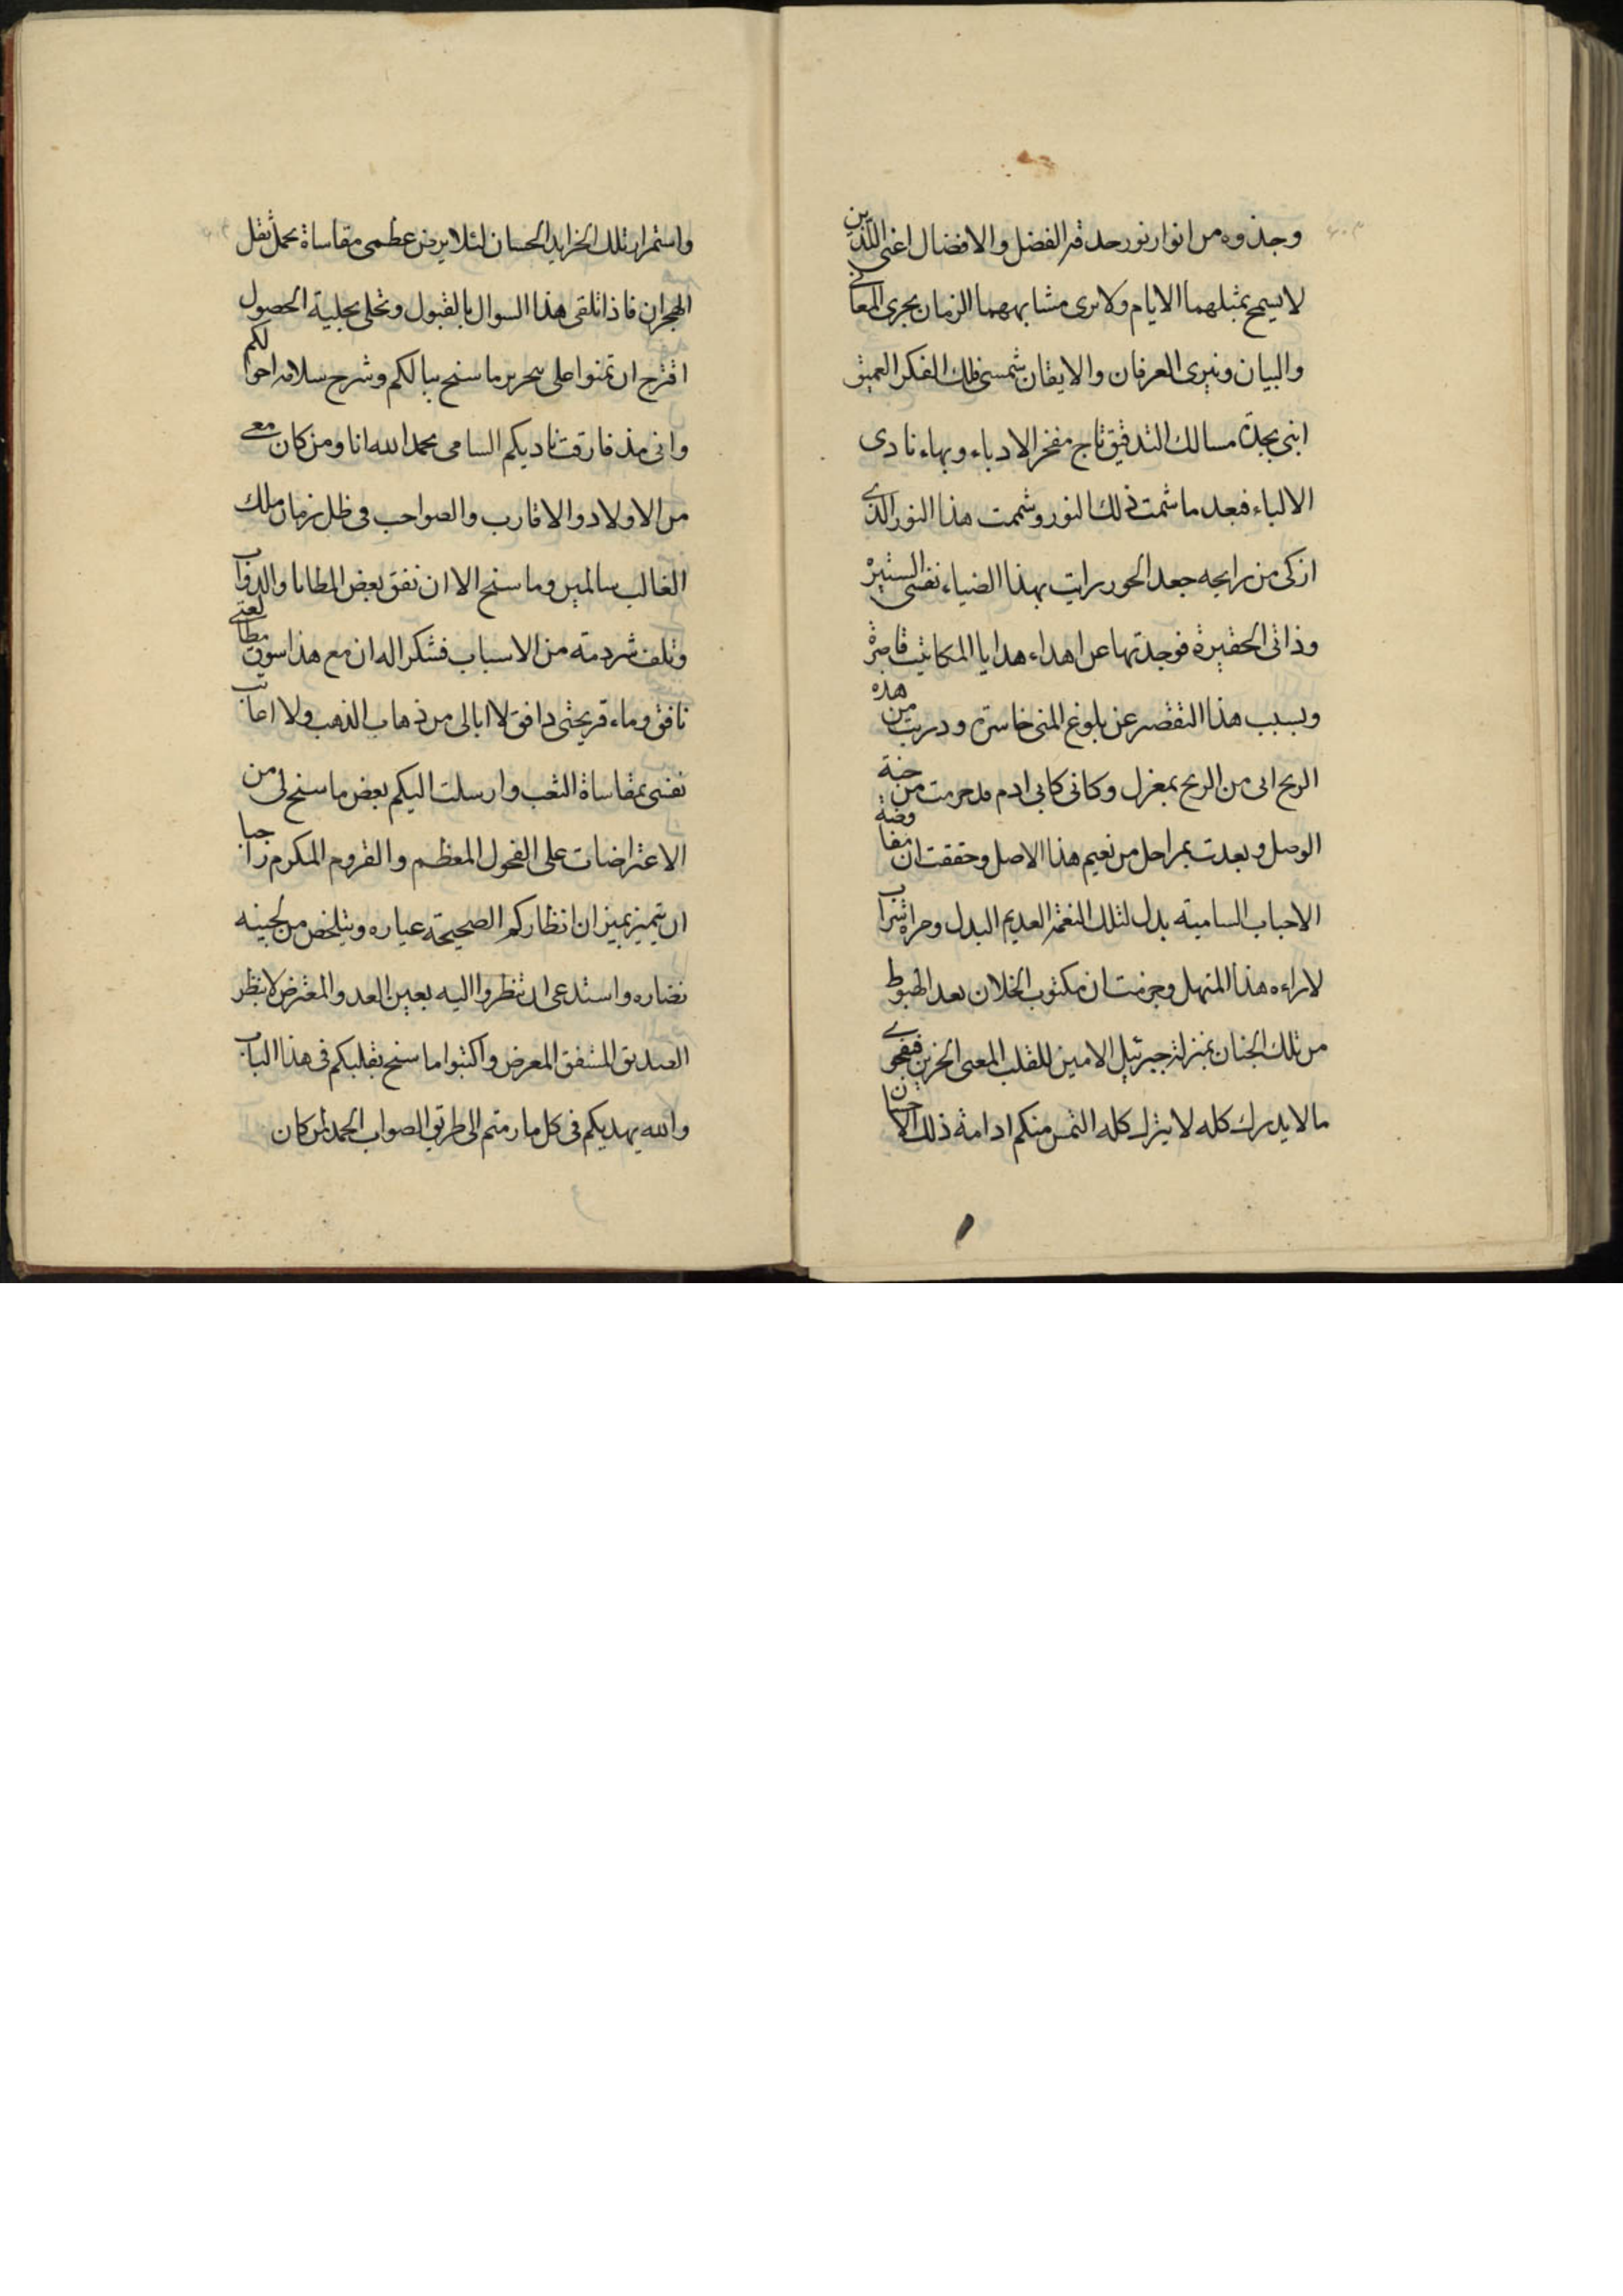 وجذوه من انوار نور حدقة الفضل والافضال اعنى اللذين
لا يسمح بمثلهما الايام ولا يرى مشابههما الزمان بحرى المعانى
والبيان ونيرى العرفان والايقان شمسى فلك الفكر العميق
ابنى بجدة مسالك التدقيق تاج مفخر الادباء وبهاء نادى
الالباء فبعد ما شمت ذلك النور وشممت هذا النور الذى
ازكى من رايحه جعد الحور رايت بهذا الضياء نفسى الستيرة
وذاتى الحقيرة فوجدتها عن اهداء هدايا المكاتيب قاصرة
وبسبب هذا التقصير عن بلوغ المنى خاسرة ودريت من هذه
الريح انى من الريح بمعزل وكانى كابى ادم قد حرمت من جنة
الوصل وبعدت بمراحل من نعيم هذا الاصل وحققت ان مفاوضة
الاحباب السامية بدل لتلك النعمة العديم البدل ومراة شراب
لاراءه هذا المنهل وجزمت ان مكتوب الخلان بعد الهبوط
من تلك الجنان بمنزلة جبرئيل الامين للقلب المعنى الحزين ففحوى
ما لا يدرك كله لا يترك كله التمس منكم ادامة ذلك الاحسان
واستمرار تلك الخرايد الحسان لئلا يرض عظمى مقاساة محمل ثقل
الهجران فاذا تلقى هذا السوال بالقبول وتحلى بحلية الحصول
اقترح ان تمنوا على بتحرير ما سنح ببالكم وشرح سلامة احوالكم
وانى مذ فارقت ناديكم السامى بحمد الله انا ومن كان معى
من الاولاد والاقارب والصواحب فى ظل زمان ملك
الغالب سالمين وما سنح الا ان نفق بعض المطايا والدواب
وتلف شرذمة من الاسباب فشكرا له ان مع هذا سوق مطالعتى
نافق وماء قريحتى دافق لا ابالى من ذهاب الذهب ولا اعاتب
نفسى بمقاساة التعب وارسلت اليكم بعض ما سنح لى من
الاعتراضات على الفحول المعظم والقروم المكرم راجيا
ان يتميز بميزان انظاركم الصحيحة عياره ويتلخص من لجينه
نضاره واستدعى ان تنظروا اليه بعين العدو المعترض لا بنظر
الصديق المشفق المعرض واكتبوا ما سنح بقلبكم فى هذا الباب
والله يهديكم فى كل ما رمتم الى طريق الصواب الحمد لمن كان